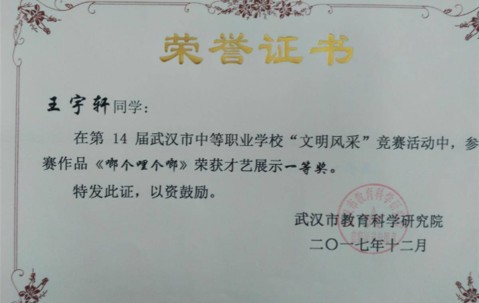 荣誉证书
王宇轩同学：
在第 14 届武汉市中等职业学校“文明风采”竞赛活动中，参
赛作品《嘟个哩个嘟》荣获才艺展示一等奖。
特发此证，以资鼓励。
武汉市教育科学研究院
二〇一七年十二月